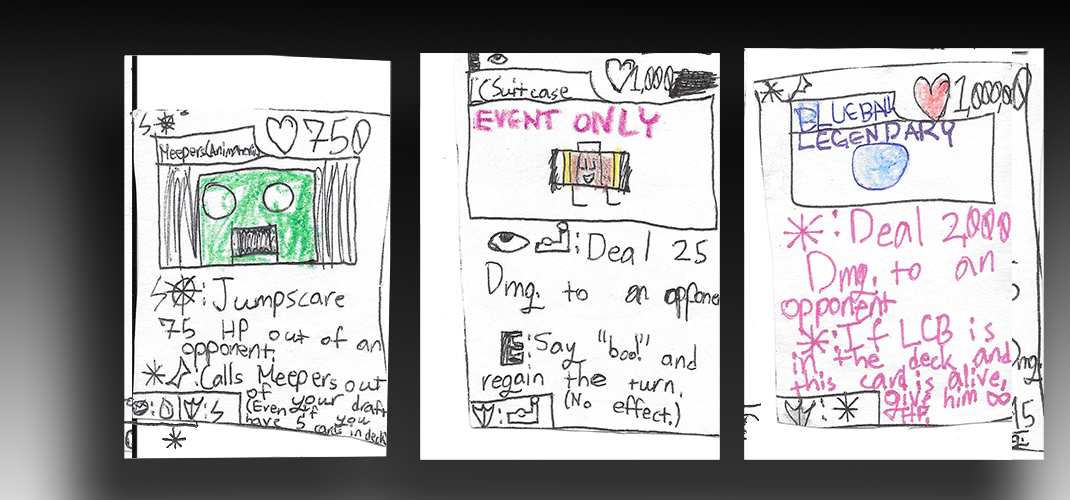 Meepers(Animatronic)
750
: Jumpscare
75 HP out of an
opponent.
: Calls Meepers out
of your draft
(Even if you
have 5 cards in deck
CSuitcase
1,000
EVENT ONLY
: Deal 25
Dmg. to an oppone
E: Say "boo!" and
regain the turn.
(No effect.)
BLUEBAL
1,000,00
LEGENDARY
: Deal 2,000
Dmg. to an
opponent
: If LCB is
in the deck and
this card is alive,
give him ∞
HP.
15